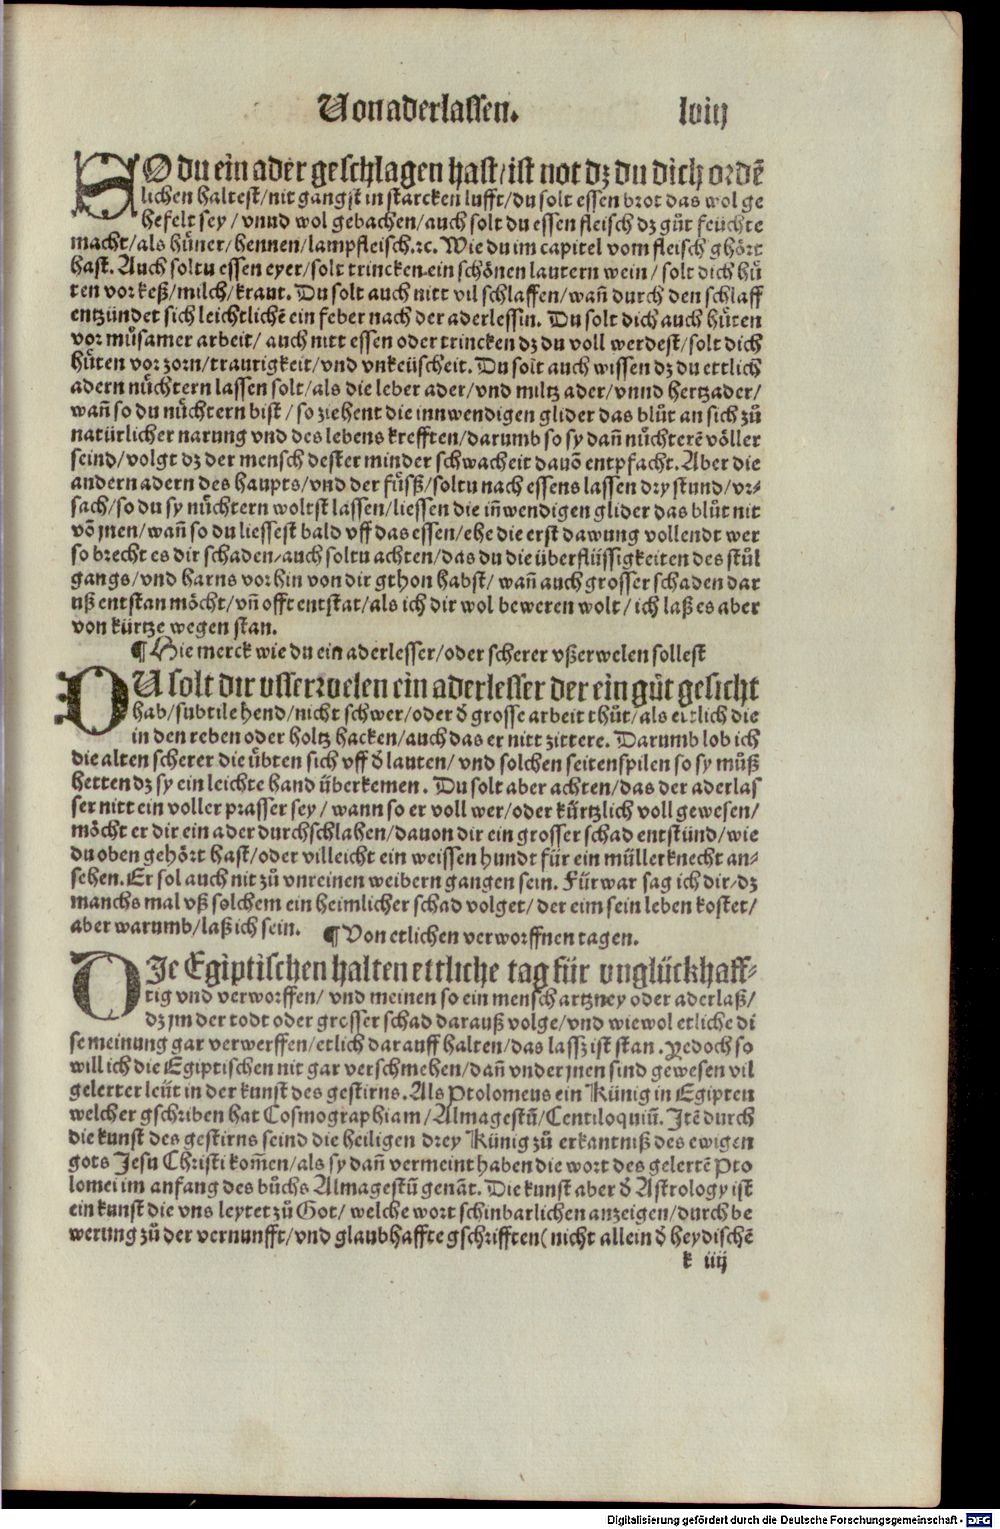 Von aderlassen. lviij
SO du ein ader geschlagen hast/ist not dz du dich ordē
lichen haltest/nit gangst in starcken lufft/du solt essen brot das wol ge
hefelt sey/vnnd wol gebachen/auch solt du essen fleisch dz gůt feüchte
macht/als hüner/hennen/lampfleisch.⁊c. Wie du im capitel vom fleisch ghört
hast. Auch soltu essen eyer/solt trincken ein schönen lautern wein/solt dich hü
ten vor keß/milch/kraut. Du solt auch nitt vil schlaffen/wañ durch den schlaff
entzündet sich leichtlichē ein feber nach der aderlessin. Du solt dich auch hüten
vor můsamer arbeit/auch nitt essen oder trincken dz du voll werdest/solt dich
hüten vor zorn/traurigkeit/vnd vnkeüscheit. Du solt auch wissen dz du ettlich
adern nüchtern lassen solt/als die leber ader/vnd miltz ader/vnnd hertzader/
wañ so du nüchtern bist/so ziehent die innwendigen glider das blůt an sich zů
natürlicher narung vnd des lebens krefften/darumb so sy dañ nüchterē völler
seind/volgt dz der mensch dester minder schwacheit dauō entpfacht. Aber die
andern adern des haupts/vnd der füsß/soltu nach essens lassen dry stund/vr-
sach/so du sy nüchtern woltst lassen/liessen die iñwendigen glider das blůt nit
vō jnen/wañ so du liessest bald vff das essen/ehe die erst dawung vollendt wer
so brecht es dir schaden/auch soltu achten/das du die überflüssigkeiten des stůl
gangs/vnd harns vorhin von dir gthon habst/wañ auch grosser schaden dar
uß entstan möcht/vñ offt entstat/als ich dir wol beweren wolt/ich laß es aber
von kürtze wegen stan.
¶ Hie merck wie du ein aderlesser/oder scherer vßerwelen sollest
DU solt dir vsserwelen ein aderlesser der ein gůt gesicht
hab/subtile hend/nicht schwer/oder ð grosse arbeit thůt/als etlich die
in den reben oder holtz hacken/auch das er nitt zittere. Darumb lob ich
die alten scherer die übten sich vff ð lauten/vnd solchen seitenspilen so sy můß
hetten dz sy ein leichte hand überkemen. Du solt aber achten/das der aderlas
ser nitt ein voller prasser sey/wann so er voll wer/oder kürtzlich voll gewesen/
möcht er dir ein ader durchschlahen/dauon dir ein grosser schad entstünd/wie
du oben gehört hast/oder villeicht ein weissen hundt für ein müllerknecht an-
sehen. Er sol auch nit zů vnreinen weibern gangen sein. Fürwar sag ich dir/dz
manchs mal vß solchem ein heimlicher schad volget/der eim sein leben kostet/
aber warumb/laß ich sein.
¶ Von etlichen verworffnen tagen.
DIe Egiptischen halten ettliche tag für vnglückhaff-
tig vnd verworffen/vnd meinen so ein mensch artzney oder aderlaß/
dz jm der todt oder grosser schad darauß volge/vnd wiewol etliche di
se meinung gar verwerffen/etlich darauff halten/das lassz ist stan. Yedoch so
will ich die Egiptischen nit gar verschmehen/dañ vnder jnen sind gewesen vil
gelerter leüt in der kunst des gestirns. Als Ptolomeus ein Künig in Egipten
welcher gschriben hat Cosmographiam/Almagestū/Centiloquiū. Itē durch
die kunst des gestirns seind die heiligen drey Künig zů erkantniß des ewigen
gots Jesu Christi kom̄en/als sy dañ vermeint haben die wort des gelertē Pto
lomei im anfang des bůchs Almagestū genāt. Die kunst aber ð Astrology ist
ein kunst die vns leytet zů Got/welche wort schinbarlichen anzeigen/durch be
werung zů der vernunfft/vnd glaubhaffte gschrifften (nicht allein ð heydischē
k iiij
Digitalisierung gefördert durch die Deutsche Forschungsgemeinschaft - DFG